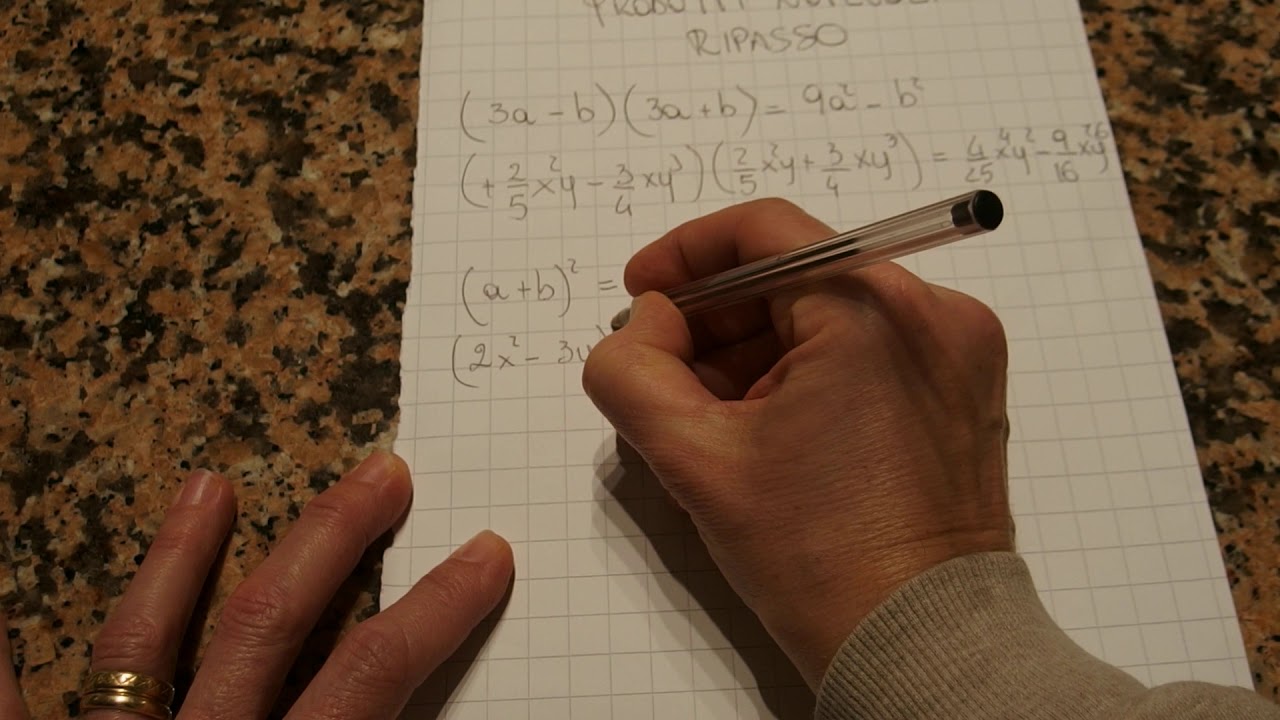 PRODOTTI
RIPASSO
(3a - b)(3a + b) = 9a² - b²
(+ 2/5 x²y - 3/4 xy³)(2/5 x²y + 3/4 xy³) = 4/25 x⁴y² - 9/16 x²y⁶
(a + b)² =
(2x² - 3y